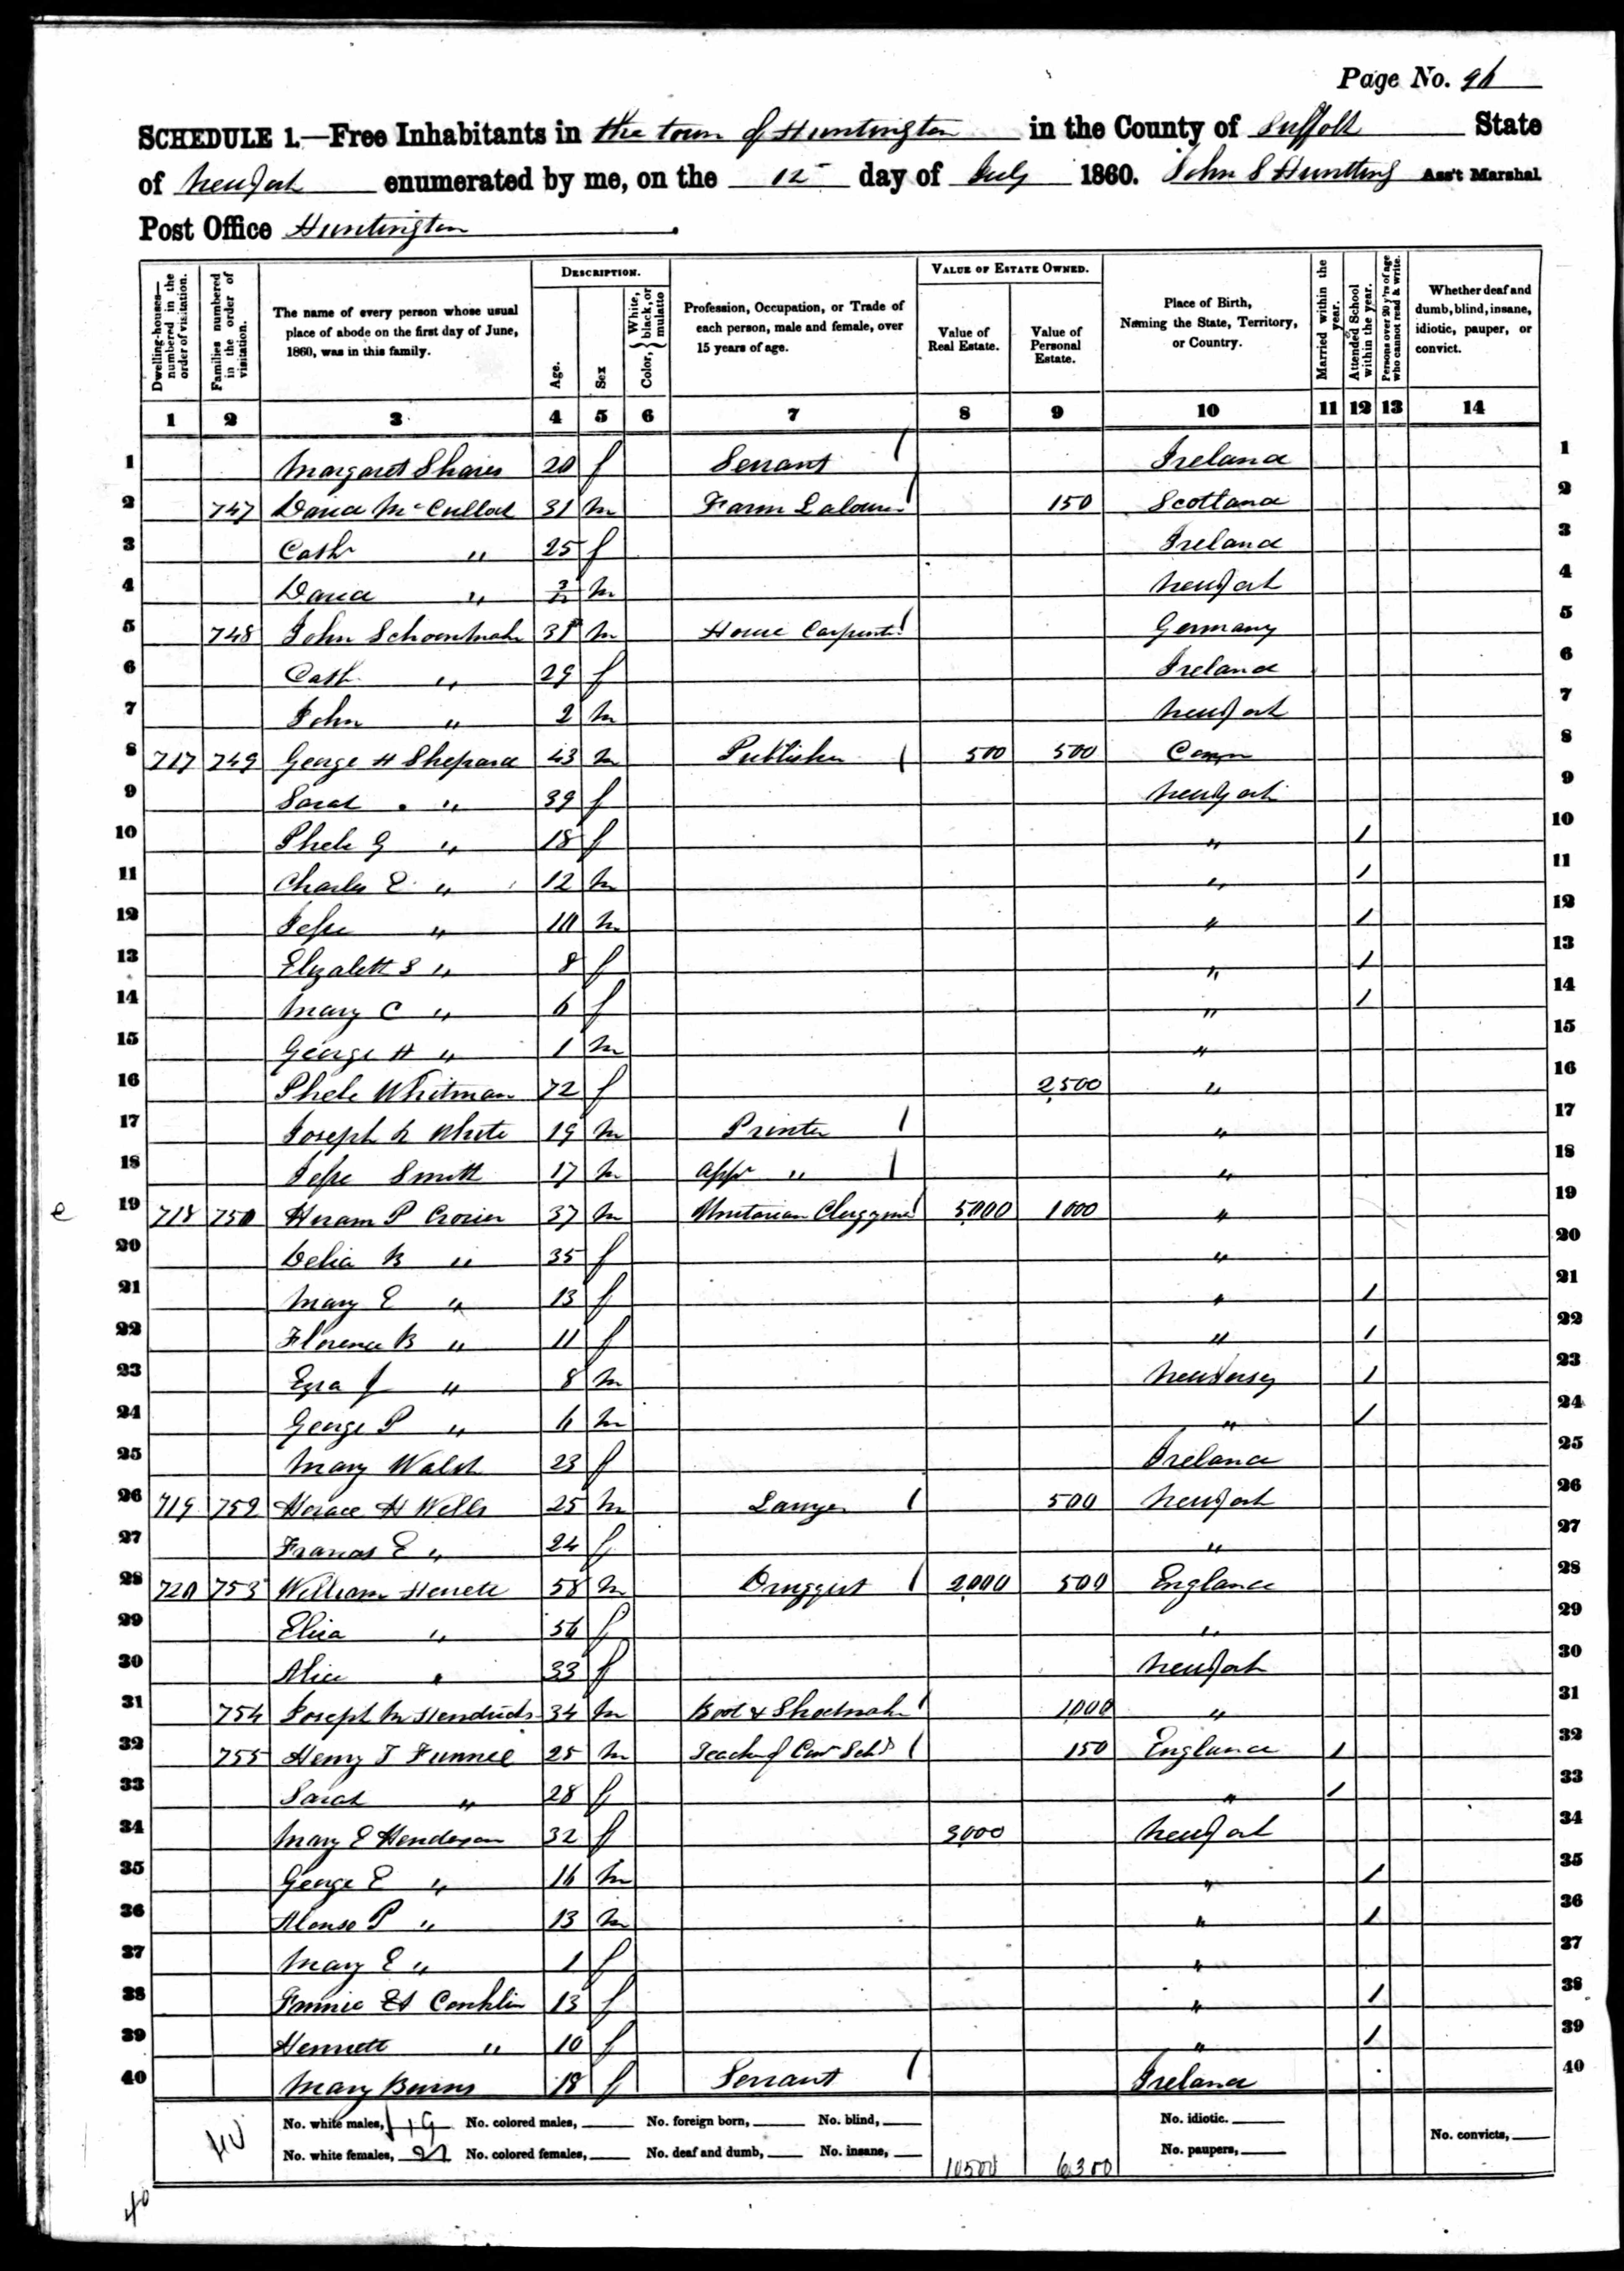 Page No. 96
SCHEDULE 1.—Free Inhabitants in the town of Huntington in the County of Suffolk State
of New York enumerated by me, on the 12 day of July 1860. John S Huntting Ass't Marshal
Post Office Huntington.
Dwelling-houses—numbered in the order of visitation. Families numbered in the order of visitation. The name of every person whose usual place of abode on the first day of June, 1860, was in this family. DESCRIPTION. Age. Sex Color, White, black, or mulatto Profession, Occupation, or Trade of each person, male and female, over 15 years of age. VALUE OF ESTATE OWNED. Value of Real Estate. Value of Personal Estate. Place of Birth, Naming the State, Territory, or Country. Married within the year. Attended School within the year. Persons over 20 y'rs of age who cannot read & write. Whether deaf and dumb, blind, insane, idiotic, pauper, or convict.
1 2 3 4 5 6 7 8 9 10 11 12 13 14
1 Margaret 20 f Servant / Ireland 1
2 747 David McCulloch 31 m Farm Laborer / 150 Scotland 2
3 Cath " 25 f Ireland 3
4 David " m New York 4
5 748 John m House Carpenter / Germany 5
6 Cath " 29 f Ireland 6
7 John " 2 m New York 7
8 717 749 George H Shepard 43 m Publisher / 500 500 Conn 8
9 Sarah " 39 f New York 9
10 Phebe G " 18 f " / 10
11 Charles E " 12 m " / 11
12 Jesse " 10 m " / 12
13 Elizabeth S " 8 f " / 13
14 Mary C " 6 f " / 14
15 George H " 1 m " 15
16 Phebe Whitman 72 f 2,500 " 16
17 Joseph R White 19 m Printer / " 17
18 Jesse Smith 17 m app " / " 18
e 19 718 750 Hiram P Crozier 37 m Unitarian Clergyman / 5,000 1000 " 19
20 Delia B " 35 f " 20
21 Mary E " 13 f " / 21
22 Florence B " 11 f " / 22
23 Ezra J " 8 m New Jersey / 23
24 George P " 6 m " / 24
25 Mary Walsh 23 f Ireland 25
26 719 752 Horace H Wells 25 m Lawyer / 500 New York 26
27 Frances E " 24 f " 27
28 720 753 William 58 m Druggist / 2,000 500 England 28
29 Eliza " 56 f " 29
30 Alice " 33 f New York 30
31 754 Joseph M 34 m Boot & Shoemaker / 1,000 " 31
32 755 Henry T Funnell 25 m Teacher of Com Sch / 150 England / 32
33 Sarah " 28 f " / 33
34 Mary E Henderson 32 f 3,000 New York 34
35 George E " 16 m " / 35
36 Alonso P " 13 m " / 36
37 Mary E " 1 f " 37
38 Conklin 13 f " / 38
39 " 10 f " / 39
40 Mary Burns 18 f Servant / Ireland 40
No. white males, 19 No. colored males, No. foreign born, No. blind, No. idiotic.
No. white females, 21 No. colored females, No. deaf and dumb, No. insane, 10500 6300 No. paupers, No. convicts,
40
40